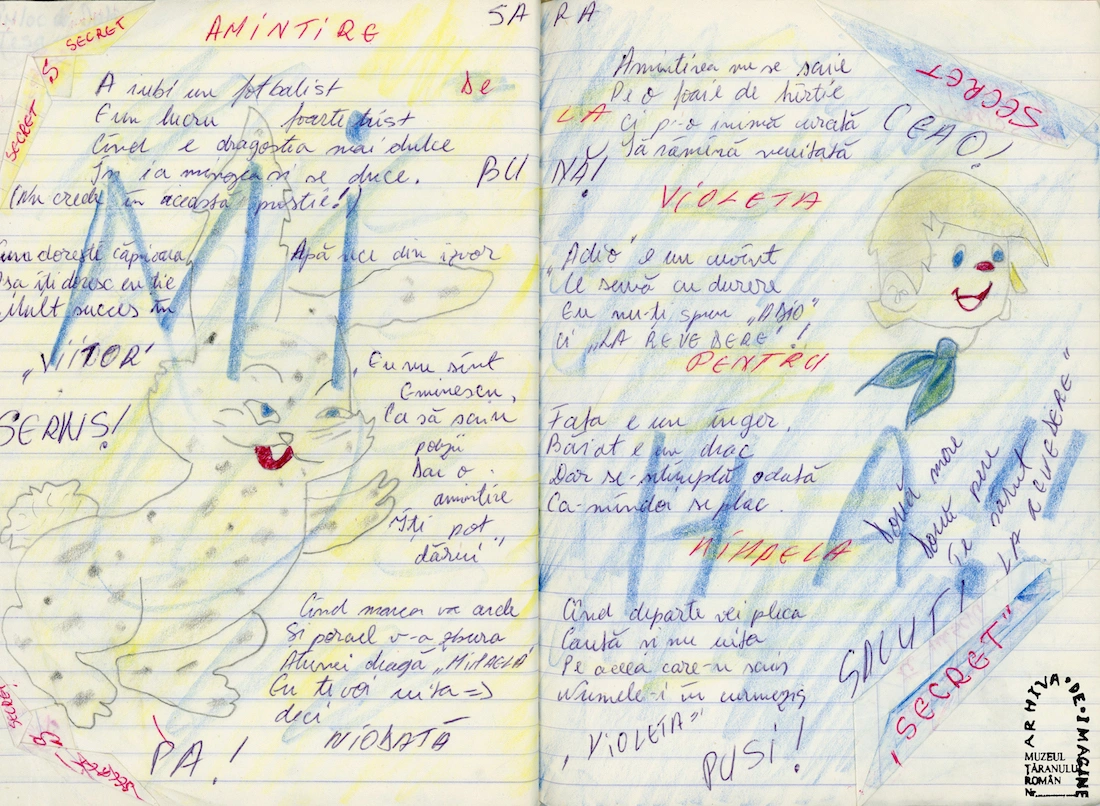 SECRET
S
SECRET
AMINTIRE
SARA
A iubi un fotbalist
De
E un lucru foarte trist
Cînd e dragostea mai dulce
Îți ia mingea și se duce.
BU
(Nu crede în această prostie!)
MI
dorește căprioara
Apă rece din izvor
Așa îți doresc eu ție
Mult succes în
„VIITOR"
SERVUS!
„Eu nu sînt
Eminescu,
Ca să scriu
poezii
Dar o
amintire
Îți pot
dărui"
Cînd marea va arde
Și porcul v-a zbura
Atunci dragă „MIHAELA"
Eu te voi uita =>
deci
NIODATĂ
PA!
SECRET
S
SECRET
Amintirea nu se scrie
Pe o foaie de hîrtie
LA
Ci p-o inimă curată
Să rămînă neuitată
NĂ!
CEAO!
SECRET
VIOLETA
„Adio" e un cuvînt
Ce scriu cu durere
Eu nu-ți spun „ADIO"
Ci „LA REVEDERE"!
PENTRU
Fata e un înger,
Băiat e un drac
Dar se-ntîmplă odată
Ca-mîndoi se plac.
HA!!
MIHAELA
Două mere
Două pere
Te sărut
LA REVEDERE"
Cînd departe vei pleca
Caută și nu uita
Pe aceea care-și scris
Numele-i în curmeziș
„VIOLETA"
PUSI!
SALUT!
„SECRET"
ARHIVA·DE·IMAGINE
MUZEUL
ȚĂRANULUI
ROMÂN
Nr.